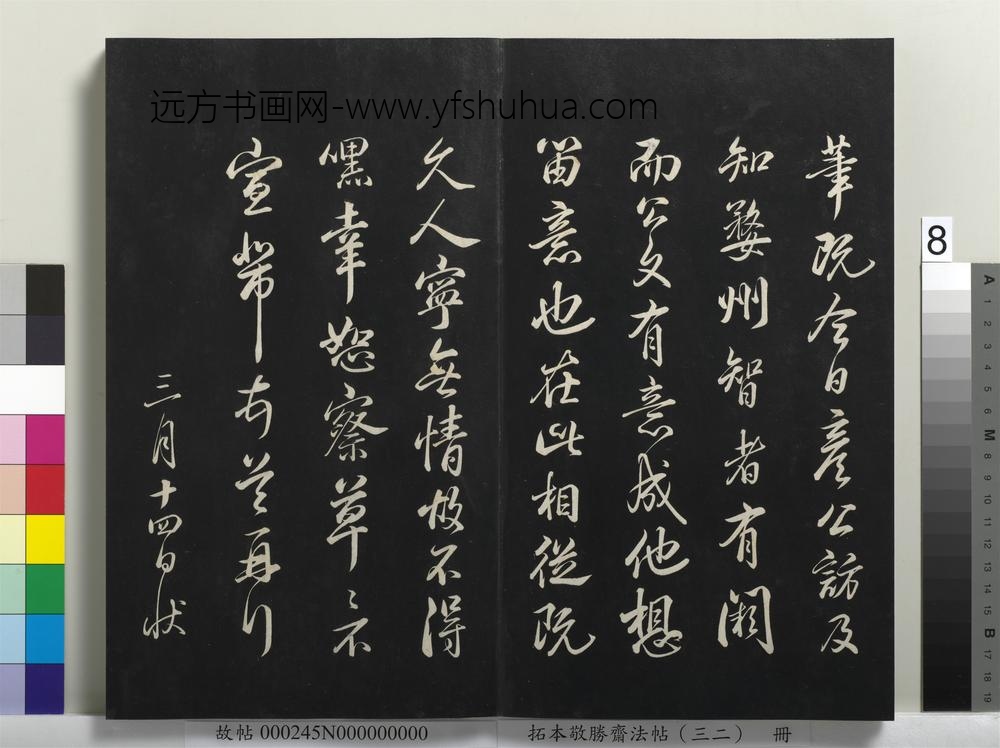 远方书画网-www.yfshuhua.com
筆既今日彦公訪及
知婺州智者有闕
而公文有意成他想
留意也在此相從既
久人寧無情故不得
嘿幸恕察草〻不
宣黻 再行
三月十四日状
8
A 1 2 3 4 5 6 M 8 9 10 11 12 13 14 15 B 17 18 19
故帖 000245N000000000
拓本敬勝齋法帖（三二） 冊